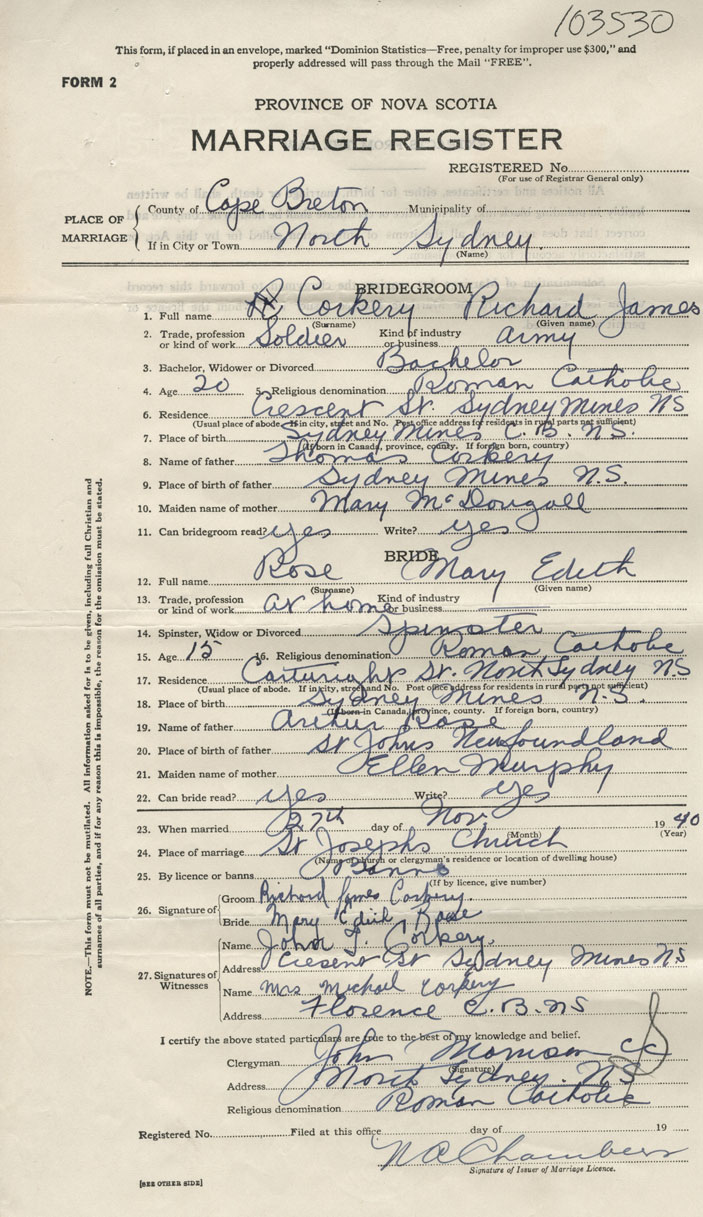 103530
This form, if placed in an envelope, marked "Dominion Statistics—Free, penalty for improper use $300," and
properly addressed will pass through the Mail "FREE".
FORM 2
PROVINCE OF NOVA SCOTIA
MARRIAGE REGISTER
REGISTERED No.
(For use of Registrar General only)
PLACE OF MARRIAGE
County of Cape Breton Municipality of
If in City or Town North Sydney.
(Name)
BRIDEGROOM
1. Full name Corkery Richard James
(Surname) (Given name)
2. Trade, profession or kind of work Soldier Kind of industry or business army
3. Bachelor, Widower or Divorced Bachelor
4. Age 20 5. Religious denomination Roman Catholic
6. Residence Crescent St. Sydney Mines NS
(Usual place of abode. If in city, street and No. Post office address for residents in rural parts not sufficient)
7. Place of birth Sydney Mines C. B. N.S.
(If born in Canada, province, county. If foreign born, country)
8. Name of father Thomas Corkery
9. Place of birth of father Sydney Mines N.S.
10. Maiden name of mother Mary McDougall
11. Can bridegroom read? yes Write? yes
BRIDE
12. Full name Rose Mary Edith
(Surname) (Given name)
13. Trade, profession or kind of work at home Kind of industry or business
14. Spinster, Widow or Divorced Spinster
15. Age 15 16. Religious denomination Roman Catholic
17. Residence Cartwright St. North Sydney NS
(Usual place of abode. If in city, street and No. Post office address for residents in rural parts not sufficient)
18. Place of birth Sydney Mines N.S.
(If born in Canada, province, county. If foreign born, country)
19. Name of father Arthur Rose
20. Place of birth of father St Johns Newfoundland
21. Maiden name of mother Ellen Murphy
22. Can bride read? yes Write? yes
23. When married 27th day of Nov. 1940
(Month) (Year)
24. Place of marriage St Josephs Church
(Name of church or clergyman's residence or location of dwelling house)
25. By licence or banns Banns
(If by licence, give number)
26. Signature of
Groom Richard James Corkery.
Bride Mary Edith Rose
27. Signatures of Witnesses
Name John T. Corkery.
Address Cresent St Sydney Mines N.S
Name Mrs Michael Corkery
Address Florence C. B. NS
I certify the above stated particulars are true to the best of my knowledge and belief.
Clergyman John cc
(Signature)
Address North Sydney. NS
Religious denomination Roman Catholic
Registered No. Filed at this office day of 19
Chambers
Signature of Issuer of Marriage Licence.
[SEE OTHER SIDE]
NOTE.—This form must not be mutilated. All information asked for is to be given, including full Christian and
surnames of all parties, and if for any reason this is impossible, the reason for the omission must be stated.